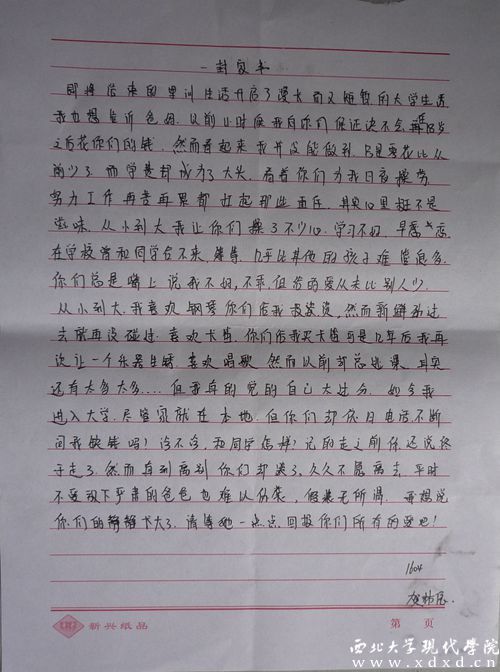 一封家书
即将结束的军训生活开启了漫长而又短暂的大学生活
我也想告诉爸妈,以前小时候我向你们保证决不会再18岁
之后花你们的钱,然而看起来我并没能做到,只是零花比从
前少了,而学费却成为了大头,看着你们为我日夜操劳
努力工作再苦再累都扛起那些面庞,其实心里挺不是
滋味,从小到大我让你们操了不少心,学习不好,早恋
在学校曾和同学合不来,等等,几乎比其他的孩子难管很多.
你们总是嘴上说我不好,不乖,但爱的要从未比别人少.
从小到大,我喜欢钢琴你们给我报资,然而新鲜劲过
去就再没碰过.喜欢卡笛,你们给我买卡笛可是几年后我再
次让一个乐器生锈.喜欢唱歌,然而以前却总逃课,其实
还有太多太多....但我真的觉的自己太过分,如今我
进入大学,尽管家就在本地,但你们却依日电话不断
问我缺钱吗?冷不冷,和同学怎样?记的走之前你还说终
于走了,然而真到离别你们却哭了,久久不愿离去,平时
不要放下严肃的爸爸也难以伪装,假装无所谓,要想说
你们的恩太大了.请等她一点点回报你们所有的爱吧!
1604
新兴纸品
第 页
西北大学现代学院
www.xdxd.cn